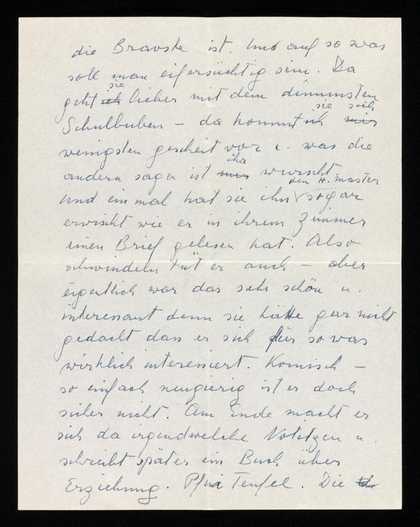 die Bravste ist. Und auf so was
soll man eifersüchtig sein. Da
geht sie lieber mit dem dümmsten
Schulbuben – da kommt sie sich
wenigsten gescheit vor u. was die
andern sagen ist ihr wurscht.
Und einmal hat sie ihn den H. master sogar
erwischt wie er in ihrem Zimmer
einen Brief gelesen hat. Also
schwindeln tut er auch – aber
eigentlich war das sehr schön u.
interessant denn sie hätte gar nicht
gedacht dass er sich für so was
wirklich interessiert. Komisch –
so einfach neugierig ist er doch
sicher nicht. Am Ende macht er
sich da irgendwelche Notitzen u.
schreibt später ein Buch über
Erziehung. Pfui Teufel. Die